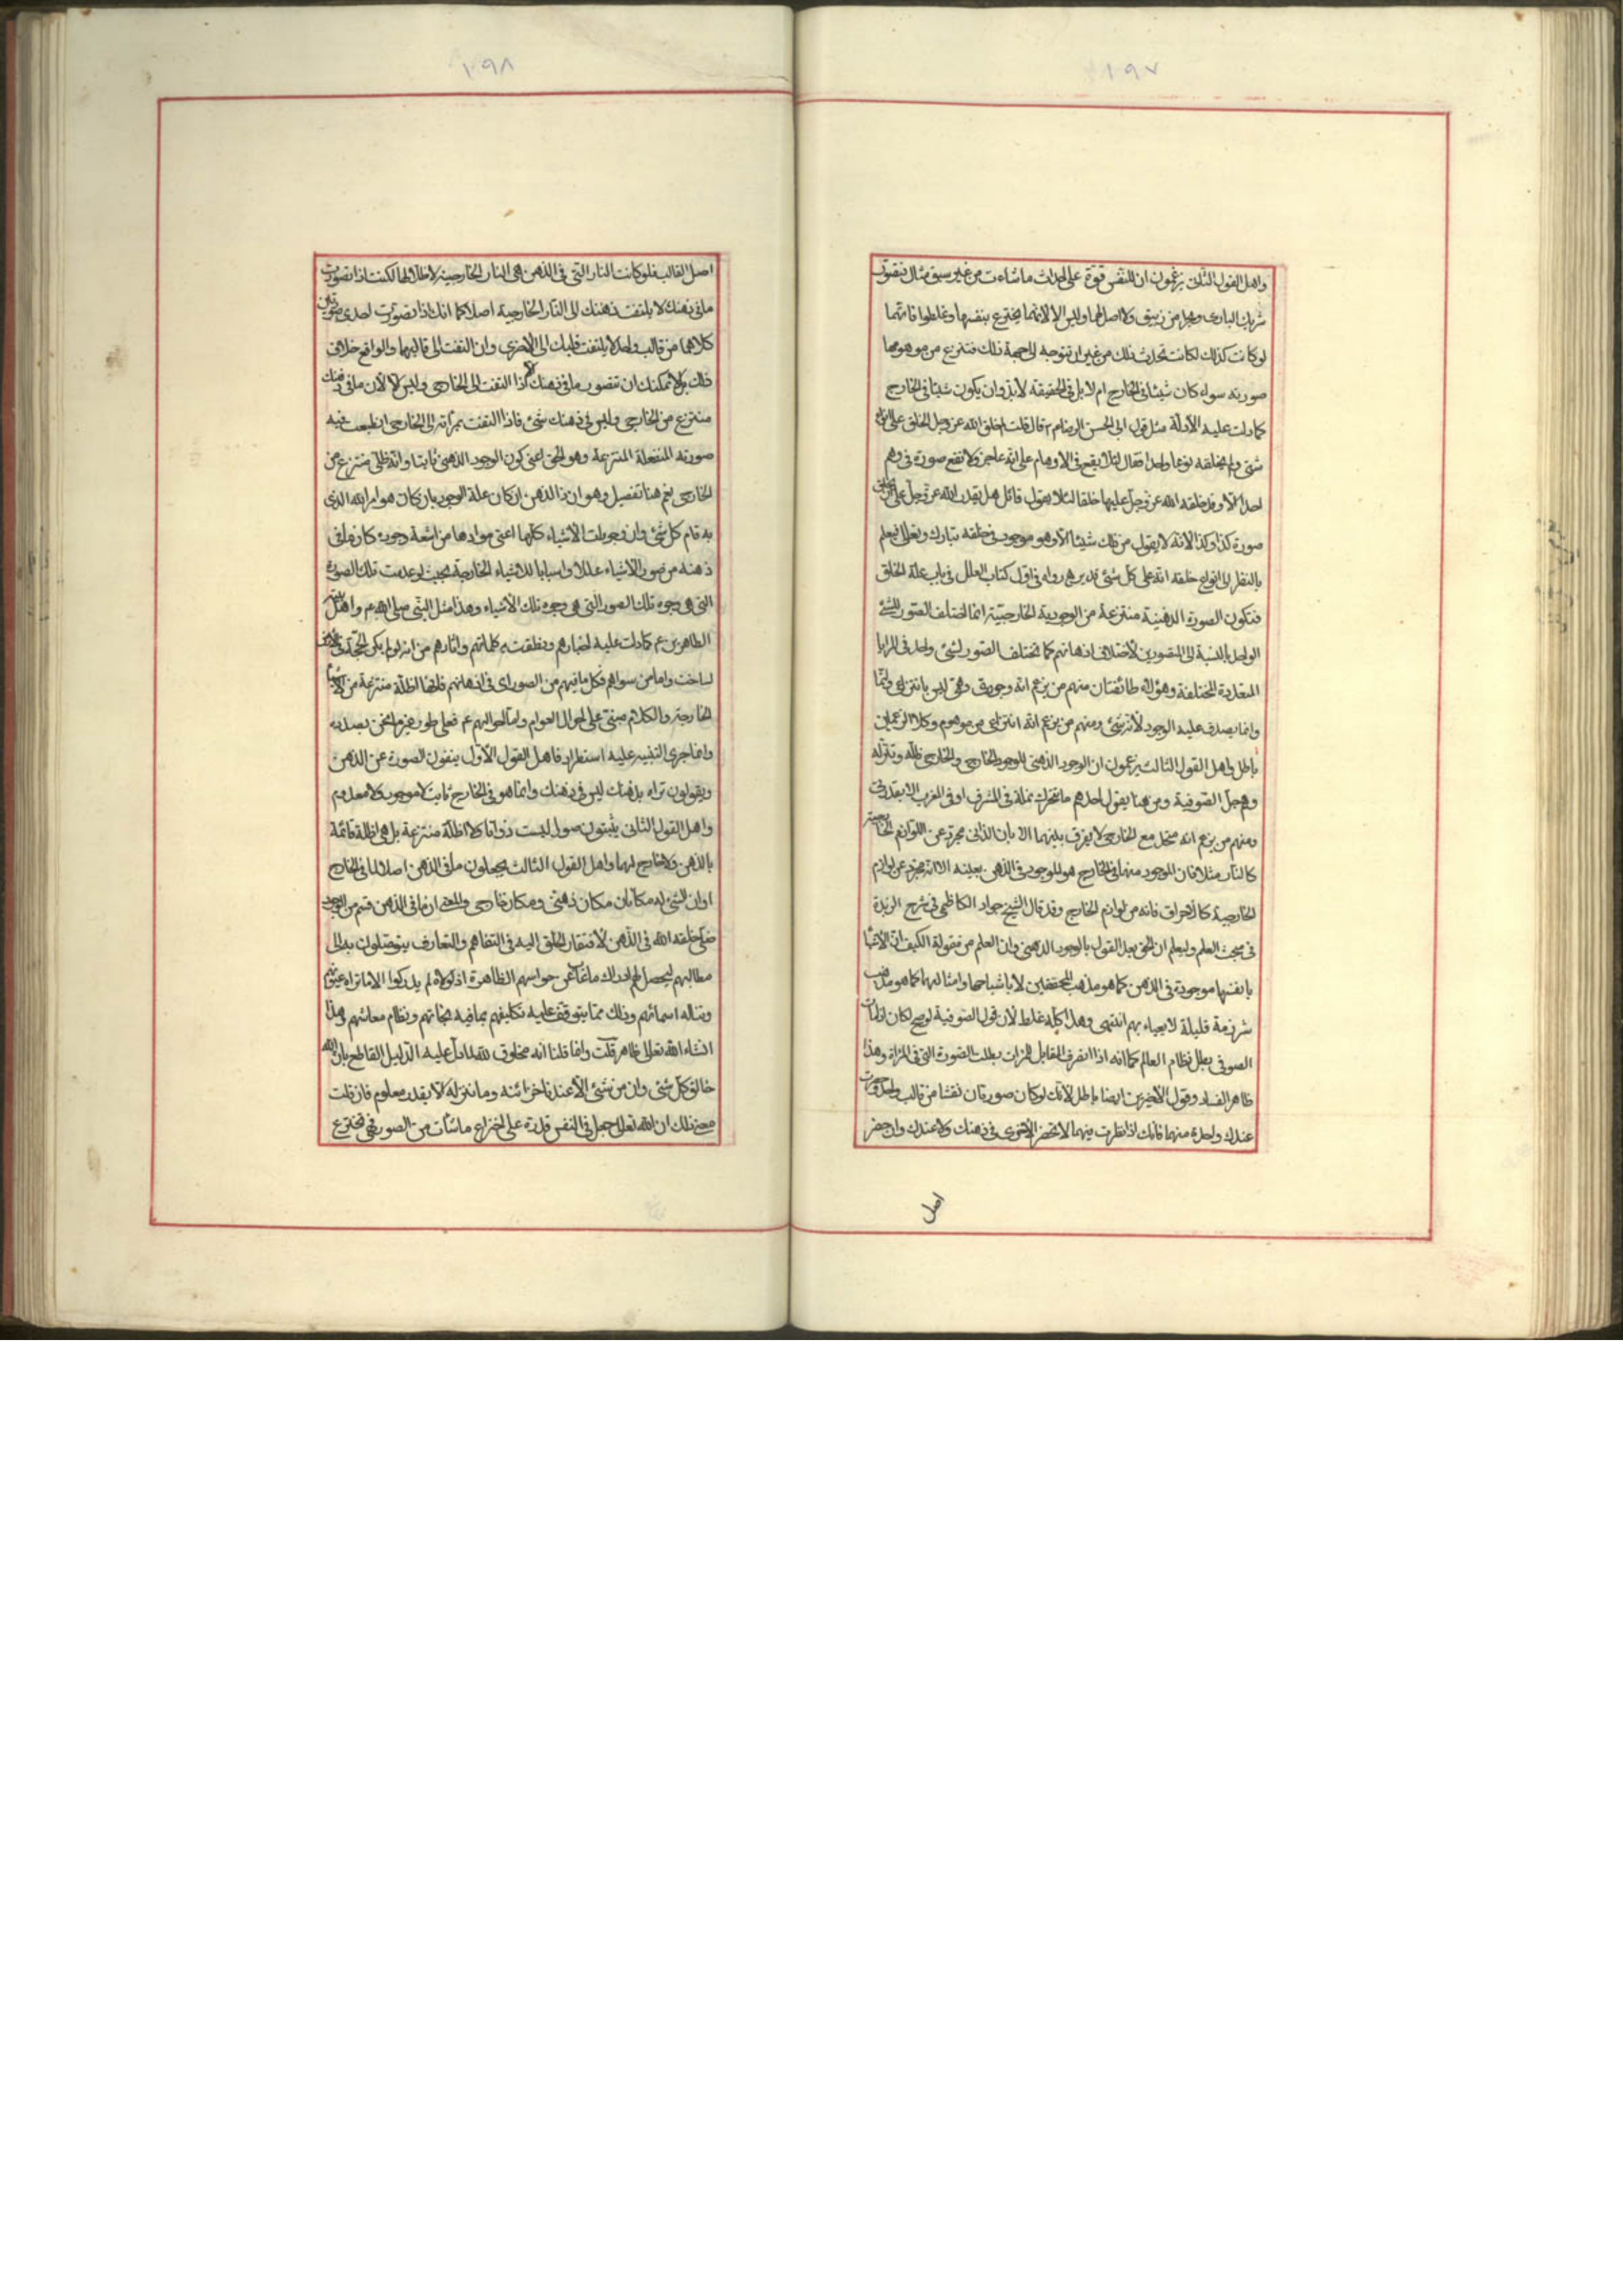 ١٩٧
واهل القول الثانى يزعمون ان للنفس قوة على احداث ما شاءت من غير سبق مثال فتقول
شريك البارى وبحر من زيبق ولا اصل لها وليس الا لانها يخترع بنفسها وغلطوا فانها
لو كانت كذلك لكانت تحدث ذلك من غير ان تتوجه الى جهة ذلك فتنزع من موهومها
صورته سواء كان شيئا فى الخارج ام لا بل فى الحقيقة لابد وان يكون شيئا فى الخارج
كما دلت عليه الادلة مثل قول ابى الحسن الرضا م قال قلت لم خلق الله عز وجل الخلق على انواع
شتى ولم يخلقه نوعا واحدا فقال لئلا يقع فى الاوهام على انه عاجز ولا تقع صورة فى وهم
احد الا وقد خلق الله عز وجل عليها خلقا لئلا يقول قائل هل يقدر الله عز وجل على ان يخلق
صورة كذا وكذا لانه لا يقول من ذلك شيئا الا وهو موجود فى خلقه تبارك وتعالى فيعلم
بالنظر الى انواع خلقه انه على كل شئ قدير رواه فى اول كتاب العلل فى باب علة الخلق
فتكون الصورة الذهنية منتزعة من الوجودية الخارجية انما اختلف الصور للشئ
الواحد بالنسبة الى المتصورين لاختلاف اذهانهم كما تختلف الصور لشئ واحد فى المرايا
المتعددة المختلفة وهؤلاء طائفتان منهم من يزعم انه وجودى وهمى ليس بانتزاعى
وانما يصدق عليه الوجود لانه شئ ومنهم من يزعم انه انتزاعى من موهوم وكلا الزعمين
باطل واهل القول الثالث يزعمون ان الوجود الذهنى للوجود الخارجى والخارجى ظله وتنزله
وهم جل الصوفية ومن هنا يقول احدهم ما تتحرك نملة فى المشرق او فى المغرب الا بقدرتى
ومنهم من يزعم انه متحد مع الخارجى لا يفرق بينهما الا بان الذهنى مجرد عن اللوازم الخارجية
كالنار مثلا فان الموجود منها فى الخارج هو الموجود فى الذهن بعينه الا انه مجرد عن لوازم
الخارجية كالاحراق فانه من لوازم الخارج وقد قال الشيخ جواد الكاظمى فى شرح الزبدة
فى مبحث العلم وليعلم ان الحق بعد القول بالوجود الذهنى وان العلم من مقولة الكيف ان الاشياء
بانفسها موجودة فى الذهن كما هو مذهب المحققين لا باشباحها وامثالها كما هو مذهب
شرذمة قليلة لا يعباء بهم انتهى وهذا كله غلط لان قول الصوفية لو صح لكان اذا مات
الصوفى بطل نظام العالم كما انه اذا انصرف المقابل للمرات بطلت الصورة التى فى المراة وهذا
ظاهر الفساد وقول الاخيرين ايضا باطل لانك لو كان صورتان نقشا من قالب واحد وحضرت
عندك واحدة منهما فانك اذا نظرت فيهما لا تحضر الاخرى فى ذهنك ولا عندك وان حضر
اصل
١٩٨
اصل القالب فلو كانت النار التى فى الذهن هى النار الخارجية لا ظلا لها لكنت اذا تصورت
ما فى ذهنك لا يلتفت ذهنك الى النار الخارجية اصلا كما انك اذا تصورت احدى صورتين
كلاهما من قالب واحد لا يلتفت قلبك الى الاخرى وان التفت الى قالبهما والواقع خلاف
ذلك بل لا يمكنك ان تتصور ما فى ذهنك الا اذا التفت الى الخارجى وليس الا لان ما فى ذهنك
منتزع من الخارجى وليس فى ذهنك شئ فاذا التفت بمرآته الى الخارجى انطبعت فيه
صورته المنفعلة المنتزعة وهو الحق اعنى كون الوجود الذهنى ثابتا وانه ظلى منتزع من
الخارجى نعم هنا تفصيل وهو ان ذا الذهن ان كان علة الوجود بان كان هو امر الله الذى
به قام كل شئ وان وجودات الاشياء كلها اعنى موادها من اشعة وجوده كان ما فى
ذهنه من صور الاشياء عللا واسبابا للاشياء الخارجة بحيث لو عدمت تلك الصورة
التى هى وجوه تلك الصور التى هى وجوه تلك الاشياء وهذا مثل النبى صلى الله عم واهل بيته
الطاهرين عم كما دلت عليه اخبارهم ونطقت به كلماتهم واثارهم من انه لو لم يكن الحجة فى الارض
لساخت واما من سواهم فكل ما فيهم من الصور اى فى اذهانهم فانها اظلة منتزعة من الاشياء
الخارجة والكلام مبنى على احوال العوام واما احوالهم عم فعلى طور غير ما نحن بصدده
وانما جرى التنبيه عليه استطرادا فاهل القول الاول ينفون الصورة عن الذهن
ويقولون تراه بذهنك ليس فى ذهنك وانما هو فى الخارج ثابت لا موجود ولا معدوم
واهل القول الثانى يثبتون صورا ليست ذواتا ولا اظلة منتزعة بل هى اظلة قائمة
بالذهن ولا خارج لها واهل القول الثالث يجعلون ما فى الذهن اصلا لما فى الخارج
او ان الشئ له مكانان مكان ذهنى ومكان خارجى والحق ان ما فى الذهن قسم من الوجود
ضلى خلقه الله فى الذهن لافتقار الخلق اليه فى التفاهم والتعارف يتوصلون به الى
مطالبهم ليحصل لهم ادراك ما غاب عن حواسهم الظاهرة اذ لولاه لم يدركوا الا ما تراه عيونهم
وتناله اسماؤهم وذلك مما يتوقف عليه تكليفهم بما فيه نجاتهم ونظام معاشهم وهذا
انشاء الله تعالى ظاهر قلت وانما قلنا انه مخلوق لله لما دل عليه الدليل القاطع بان الله
خالق كل شئ وان من شئ الا عندنا خزائنه وما ننزله الا بقدر معلوم فان قلت
معنى ذلك ان الله تعالى جعل فى النفس قدرة على اختراع ما شأت من الصور فهى تخترع